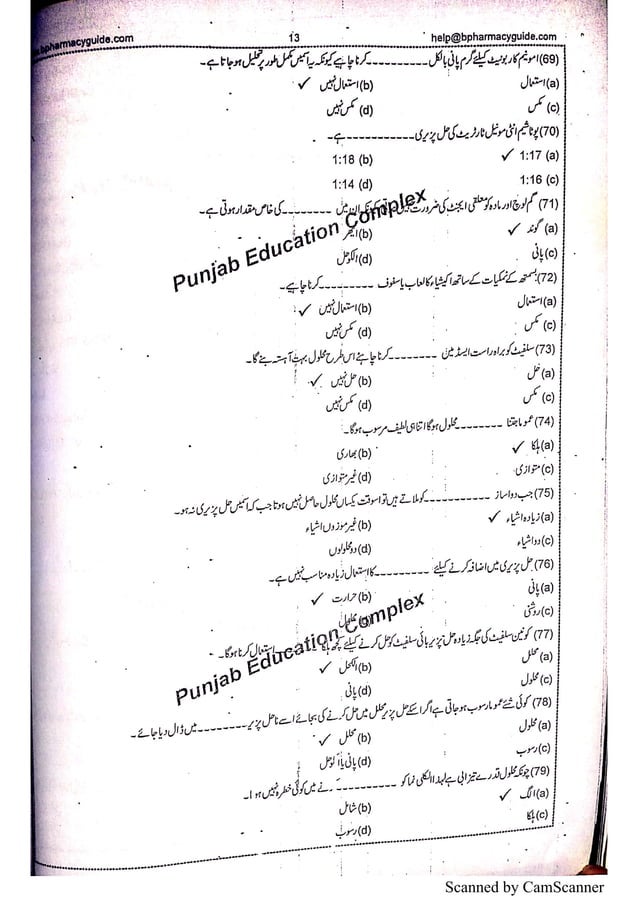 bpharmacyguide.com 13 help@bpharmacyguide.com
(69) امونیم کاربونیٹ کیلئے گرم پانی بالکل ________ کرنا چاہیے کیونکہ یہ اسمیں مکمل طور پر تحلیل ہوجاتا ہے۔
(a) استعمال (b) استعمال نہیں ✓
(c) مکس (d) مکس نہیں
(70) پوٹاشیم انٹی مونیل ٹارٹریٹ کی حل پزیری ________ ہے۔
(a) 1:17 ✓ (b) 1:18
(c) 1:16 (d) 1:14
(71) گم لوچ اور مادہ کو معلقی ایجنٹ کی ضرورت ________ کی خاص مقدار ہوتی ہے۔
(a) گوند ✓ (b)
(c) پانی (d) الکوحل
(72) بسمتھ کے نمکیات کے ساتھ اکیشیاء کا لعاب یا سفوف ________ کرنا چاہیے۔
(a) استعمال (b) استعمال نہیں ✓
(c) مکس (d) مکس نہیں
(73) سلفیٹ کو براہ راست ایسڈ میں ________ کرنا چاہئے اس طرح محلول بہت آہستہ بنے گا۔
(a) حل (b) حل نہیں ✓
(c) مکس (d) مکس نہیں
(74) عموما جتنا ________ محلول ہوگا اتنا ہی لطیف مرسوب ہوگا۔
(a) ہلکا ✓ (b) بھاری
(c) متوازی (d) غیر متوازی
(75) جب دوا ساز ________ کو ملاتے ہیں تو اسوقت یکساں محلول حاصل نہیں ہوتا جب کہ اسمیں حل پزیری نہ ہو۔
(a) زیادہ اشیاء ✓ (b) غیر موزوں اشیاء
(c) دو اشیاء (d) دو محلولوں
(76) حل پزیری میں اضافہ کرنے کیلئے ________ کا استعمال زیادہ مناسب نہیں ہے۔
(a) پانی (b) حرارت ✓
(c) روشنی (d) محلول
(77) کونین سلفیٹ کی جگہ زیادہ حل پزیر بائی سلفیٹ کو حل کرنے کیلئے کچھ ________ استعمال کرنا ہوگا۔
(a) محلل (b) الکحل ✓
(c) محلول (d) پانی
(78) کوئی شئے عموما رسوب ہوجاتی ہے اگر اسکے حل پزیر محلل میں حل کرنے کی بجائے اسے ناحل پزیر ________ میں ڈال دیا جائے۔
(a) محلول (b) محلل ✓
(c) رسوب (d) پانی یا الکوحل
(79) چونکہ محلول قدرے تیزابی ہے لہذا الکلی نما کو ________ نے میں کوئی خطرہ نہیں ہوا۔
(a) الگ ✓ (b) شامل
(c) ہلکا (d) رسوب
Punjab Education Complex
Punjab Education Complex
Scanned by CamScanner